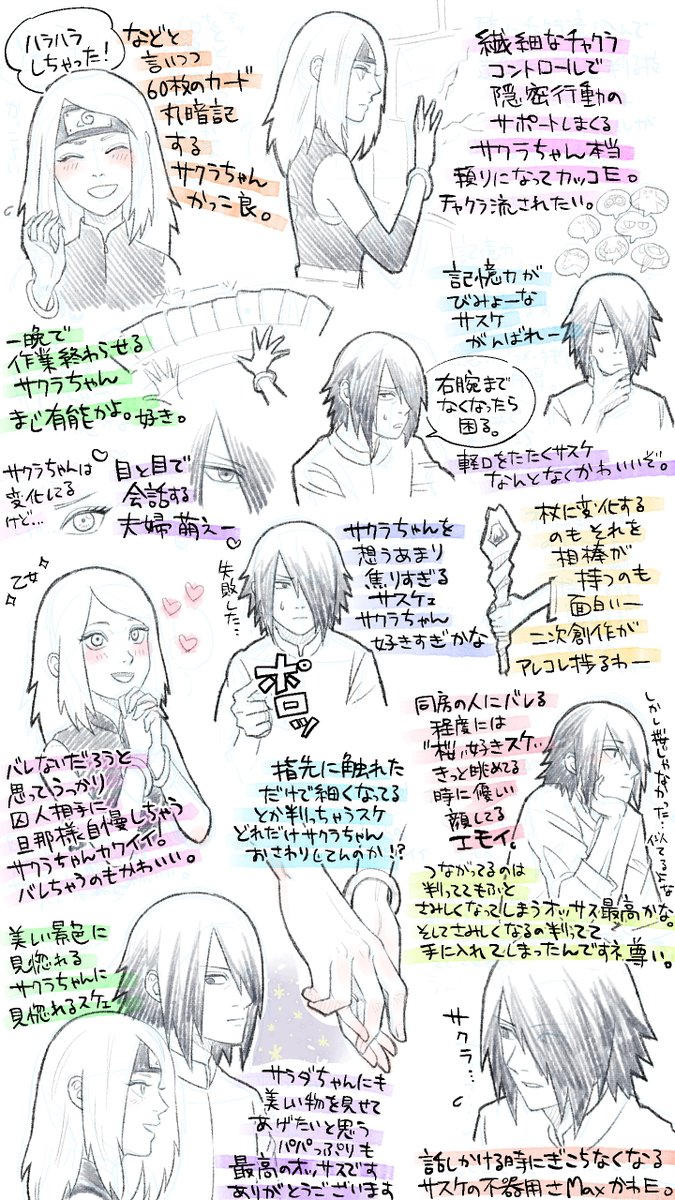 ハラハラ
しちゃった！
などと
言いつつ
60枚のカード
札暗記
する
サクラちゃん
かっこ良。
繊細なチャクラ
コントロールで
隠密行動の
サポートしまくる
サクラちゃん本当
頼りになってカッコE。
チャクラ流されたい。
一晩で
作業終わらせる
サクラちゃん
まじ有能かよ。好き。
記憶力が
びみょーな
サスケ
がんばれー
右腕まで
なくなったら
困る。
軽口をたたくサスケ
なんとなくかわいいぞ。
サクラちゃんは
変化してる
けど…
目と目で
会話する
夫婦萌えー
乙女
サクラちゃんを
想うあまり
焦りすぎる
サスケェ
サクラちゃん
好きすぎかな
失敗した…
ポロッ
杖に変化する
のも それを
相棒が
持つのも
面白いー
二次創作が
アレコレ捗るわー
バレないだろうと
思ってうっかり
囚人相手に
旦那様自慢しちゃう
サクラちゃんカワイイ。
バレちゃうのもかわいい。
指先に触れた
だけで細くなってる
とか判っちゃうスケ
どれだけサクラちゃん
おさわりしてんのか!?
同房の人にバレる
程度には
"桜"好きスケ…
きっと眺めてる
時に優しい
顔してる
エモイ。
しかし桜じゃなかった…似てるよな
つながってるのは
判っててもふと
さみしくなってしまうオッサス最高かな。
そしてさみしくなるの判ってて
手に入れてしまったんですネ尊い。
美しい景色に
見惚れる
サクラちゃんに
見惚れるスケェ
サラダちゃんにも
美しい物を見せて
あげたいと思う
パパっぷりも
最高のオッサスです
ありがとうございます
サクラ…
話しかける時にぎこちなくなる
サスケの不器用さMaxかわE。